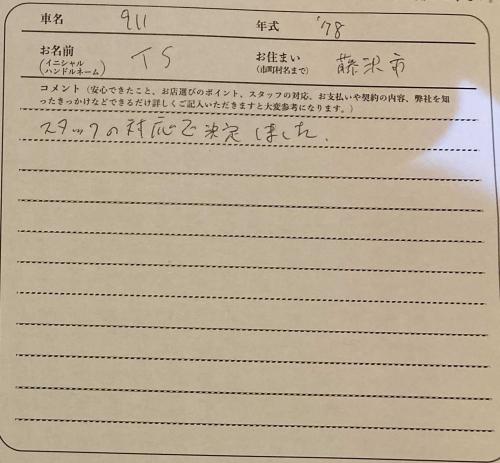 車名 911 年式 '78
お名前 TS お住まい 藤沢市
(イニシャル ハンドルネーム) (市町村名まで)
コメント(安心できたこと、お店選びのポイント、スタッフの対応、お支払いや契約の内容、弊社を知
ったきっかけなどできるだけ詳しくご記入いただきますと大変参考になります。)
スタッフの対応で決定しました.